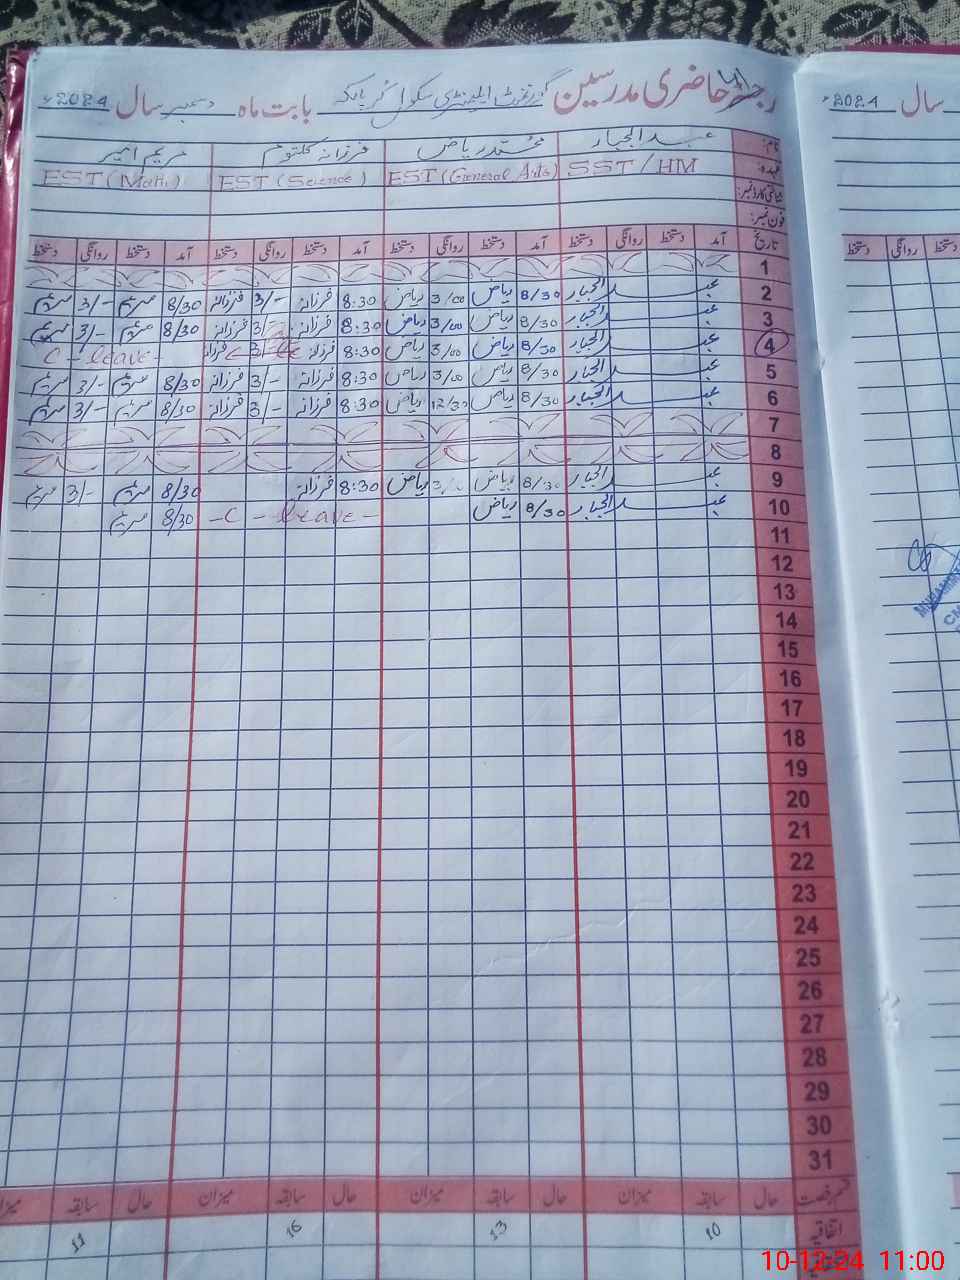 رجسٹر حاضری مدرسین گورنمنٹ ایلیمنٹری سکول بابت ماہ دسمبر سال 2024ء
سال 2024ء
نام: عبدالجبار محمد ریاض فرزانہ کلثوم مریم امیر
عہدہ: SST/HM EST (General Arts) EST (Science) EST (Math)
شناختی کارڈ نمبر:
فون نمبر:
تاریخ آمد دستخط روانگی دستخط آمد دستخط روانگی دستخط آمد دستخط روانگی دستخط آمد دستخط روانگی دستخط
دستخط روانگی دستخط
1
2 عبدالجبار 8/30 ریاض 3/00 ریاض 8:30 فرزانہ 3/- فرزانہ 8/30 مریم 3/- مریم
3 عبدالجبار 8/30 ریاض 3/00 ریاض 8:30 فرزانہ 3/- فرزانہ 8/30 مریم 3/- مریم
4 عبدالجبار 8/30 ریاض 3/00 ریاض 8:30 فرزانہ C - leave -
5 عبدالجبار 8/30 ریاض 3/00 ریاض 8:30 فرزانہ 3/- فرزانہ 8/30 مریم 3/- مریم
6 عبدالجبار 8/30 ریاض 12/30 ریاض 8:30 فرزانہ 3/- فرزانہ 8/30 مریم 3/- مریم
7
8
9 عبدالجبار 8/30 ریاض 3/00 ریاض 8:30 فرزانہ 8/30 مریم 3/- مریم
10 عبدالجبار 8/30 ریاض - C - leave - 8/30 مریم
11
12
13
14
15
16
17
18
19
20
21
22
23
24
25
26
27
28
29
30
31
قسم رخصت حال سابقہ میزان حال سابقہ میزان حال سابقہ میزان حال سابقہ میزان
اتفاقیہ 10 13 16 11
10-12-24 11:00